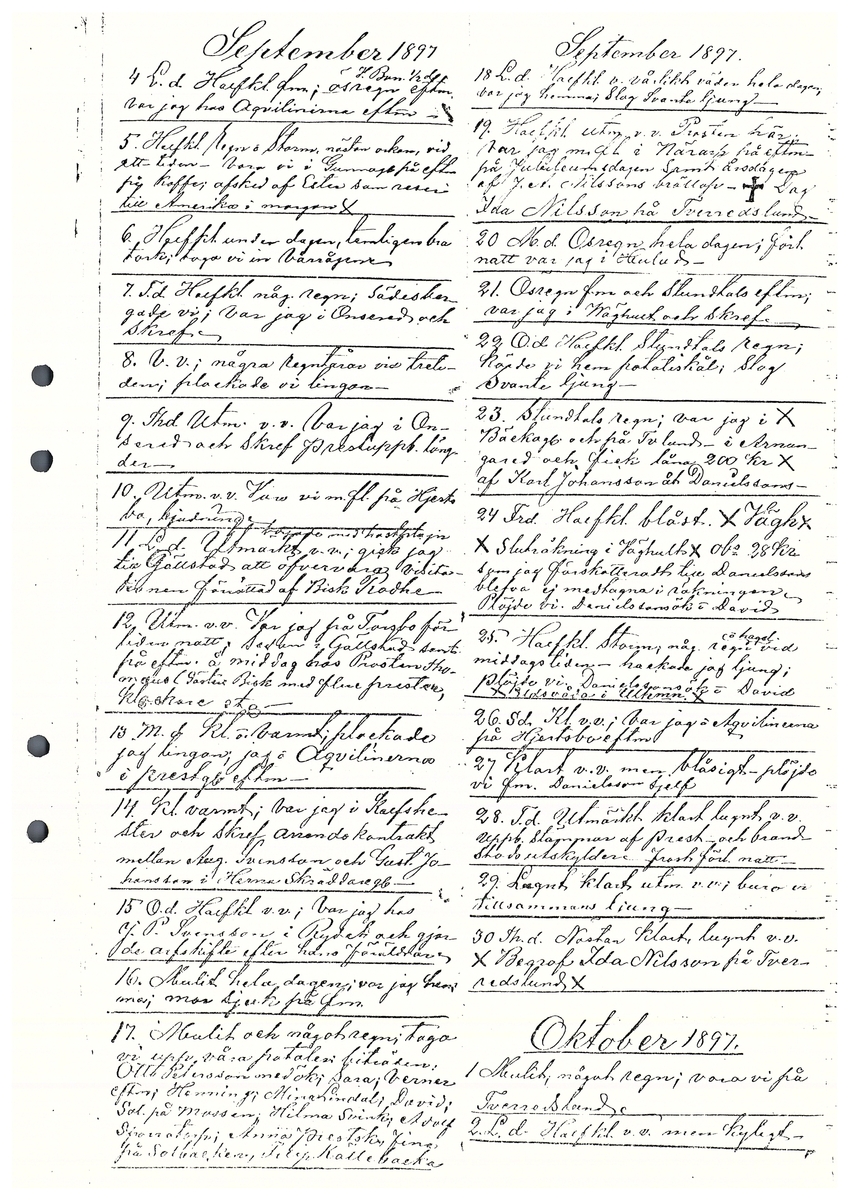 September 1897
4 L.d. Halfkl fm; ösregn eftm.
var jag hos Aqvilinima eftm
5. Halfkl. Regn o Storm, nästan orkan, vid
ett tiden - vara vi i på eftm
på kaffe; afsked af Ester som reser
till Amerika i morgon X
6. Halfkl under dagen, temligen bra
tork; toga vi in Vårrågen
7. T.d. Halfkl någ. regn; Sädesber-
gade vi; var jag i Onsered och
skref
8. V. v.; några regntårar vid tret-
den; plockade vi lingon
9. Thd Utm. v.v. Var jag i On-
sered och skref Prestuppb. läng-
der
10. Utm. v.v. Vara vi m.fl. på Hjerts-
bo, bjudning
11. L.d. Utmärkt v.v.; gick jag
till Gällstad att öfvervara visita-
tionen förrättad af Bisk Rodhe
12. Utm. v.v. Var jag på Torsbo för-
liden natt; sedan i Gällstad samt
på eftm. å middag hos Prosten Tho-
Bisk med flere prester,
Klockare etc
13. M.d Kl. o varmt; plockade
jag lingon; jag o Aqvilinerna
i prestgb eftm
14. Kl. varmt; var jag i Kalfshe-
ster och skref arrendekontrakt
mellan Aug. Svensson och Gust. Jo-
hansson i Herna Skräddaregb
15 O.d. Halfkl v.v.; Var jag hos
J. P. Svensson i Rydet och gjor-
de arfskifte efter hans föräldrar
16. Mulit hela dagen; var jag hem-
ma; mor sjuk på fm.
17. Mulit och något regn; toga
vi upp våra potater; biträden:
Otto Petersson med ök; Sara; Verner
eftm; Henning; Mina Lindal; David;
Sol. på Mossen; Hilma Adolf
Anna Prestsk; fina
från Solbacken, Källebacka
September 1897.
18 L.d. Halfkl v. vårlikt väder hela dagen;
var jag hemma; Slog Svante ljung
19. Halfkl utm. v.v. Prosten här;
Var jag m.fl. i Nårarp på eftm
på Jubileumsdagen samt årsdagen
af J.A. Nilssons bröllop - ✝ Dog
Ida Nilsson på Tverredslund
20 M.d. Ösregn hela dagen; förl.
natt var jag i Hulud
21. Ösregn fm och Stundtals eftm;
var jag i Våghult och skref
22 O.d Halfkl. Stundtals regn;
Körde vi hem potatiskål; Slog
Svante ljung
23. Stundtals regn; var jag i X
Bäckagb och på Tvlund - i Arnun-
gared och fick låna 200 Kr X
af Karl Johansson åt Danielssons
24 Frd. Halfkl. blåst. X Vågh X
X Sluträkning i Våghult X Obs 28 Kr
som jag förskotteradt till Danielssons
blefva ej medtagna i räkningen
Plöjde vi. Danielssons ök o David
25. Halfkl. Storm; någ. regn o hagel vid
middagstiden - hackade jag ljung;
plöjde vi. Danielssons ök o David
X Eldsvåda i Ulkmn. X
26. Sd. Kl. v.v.; Var jag o Aqvilinerna
på Hjertsbo eftm
27 Klart v.v. men blåsigt - plöjde
vi fm. Danielsson sjelf
28. T.d. Utmärkt klart lugnt v.v.
Uppb. Stämmor af prest- och brand-
Stodsutskylder; frost förl. natt
29. Lugnt klart utm. v.v.; buro vi
tillsammans ljung
30 Th.d. Nästan klart, lugnt v.v.
X Begrof Ida Nilsson på Tver-
redslund X
Oktober 1897.
1 Mulit, något regn; vara vi på
Tverredslund
2 L.d. Halfkl v.v. men kyligt